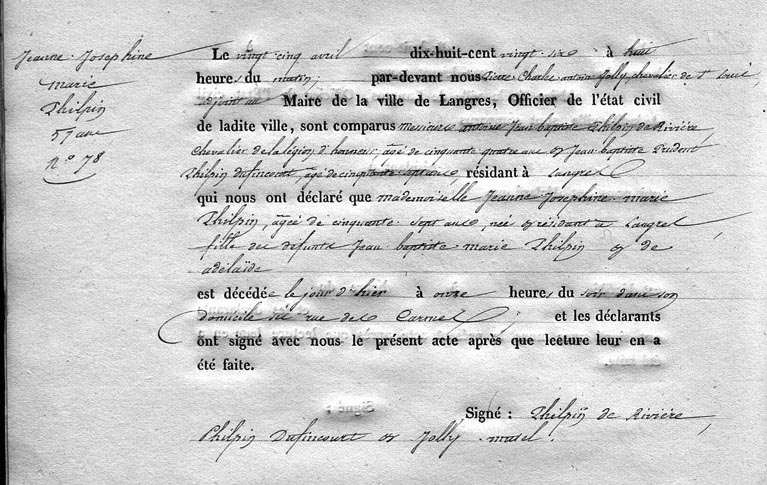 Jeanne Josephine
marie
Philpin
57 ans
n° 78
Le vingt cinq avril dix-huit-cent vingt six à huit
heures du matin, par-devant nous Pierre Charles antoine Jolly, chevalier de St Louis,
adjoint au Maire de la ville de Langres, Officier de l'état civil
de ladite ville, sont comparus messieurs antoine Jean baptiste Philpin de Rivière,
chevalier de la légion d'honneur, âgé de cinquante quatre ans et Jean baptiste Prudent
Philpin Dufincourt, âgé de cinquante ans, résidant à Langres
qui nous ont déclaré que mademoiselle Jeanne Josephine marie
Philpin, âgée de cinquante sept ans, née et résidant à Langres
fille des defunts Jean baptiste marie Philpin et de
adelaïde
est décédée le jour d'hier à onze heures du soir dans son
domicile rue des Carmes, et les déclarants
ont signé avec nous le présent acte après que lecture leur en a
été faite.
Signé : Philpin de Rivière,
Philpin Dufincourt et Jolly